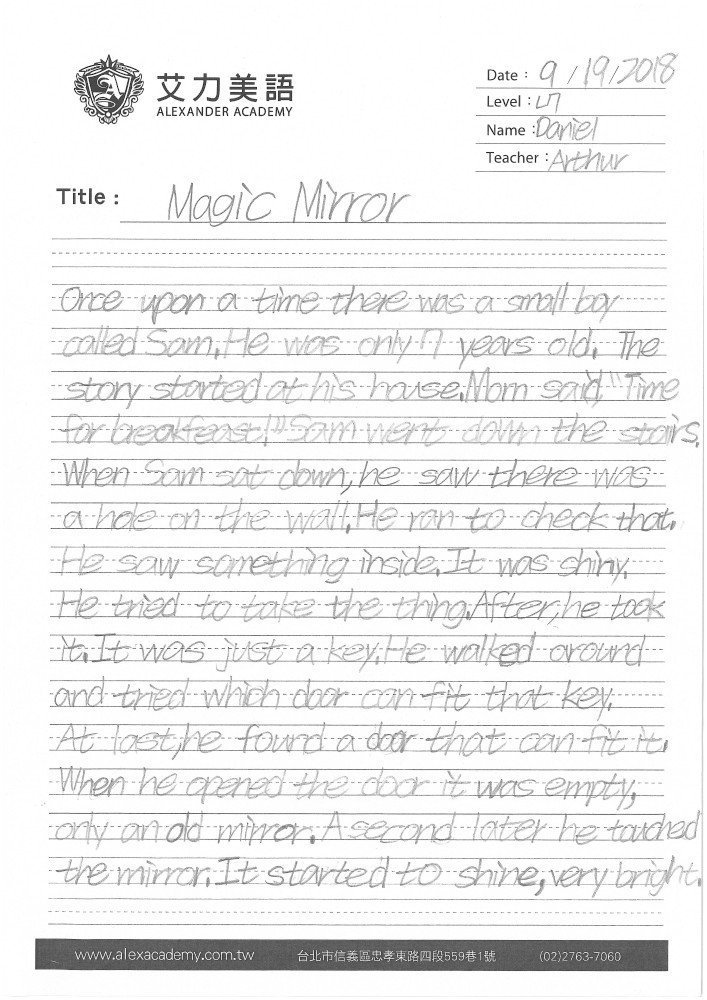 艾力美語
ALEXANDER ACADEMY
Date : 9/19/2018
Level : 5
Name : Daniel
Teacher : Arthur
Title : Magic Mirror
Once upon a time there was a small boy
called Sam. He was only 7 years old. The
story started at his house. Mom said, "Time
for breakfeast!" Sam went down the stairs.
When Sam sat down, he saw there was
a hole on the wall. He ran to check that.
He saw something inside. It was shiny.
He tried to take the thing. After, he took
it. It was just a key. He walked around
and tried which door can fit that key.
At last, he found a door that can fit it.
When he opened the door it was empty,
only an old mirror. A second later he touched
the mirror. It started to shine, very bright.
www.alexacademy.com.tw 台北市信義區忠孝東路四段559巷1號 (02)2763-7060